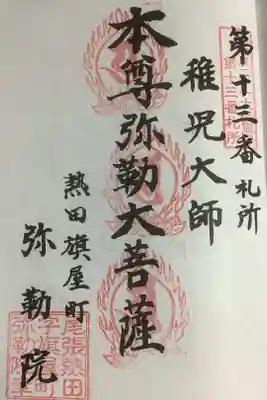 第十三番札所
稚児大師
本尊弥勒大菩薩
熱田旗屋町
弥勒院
第十三番札所
尾張熱田
字旗町
弥勒院主